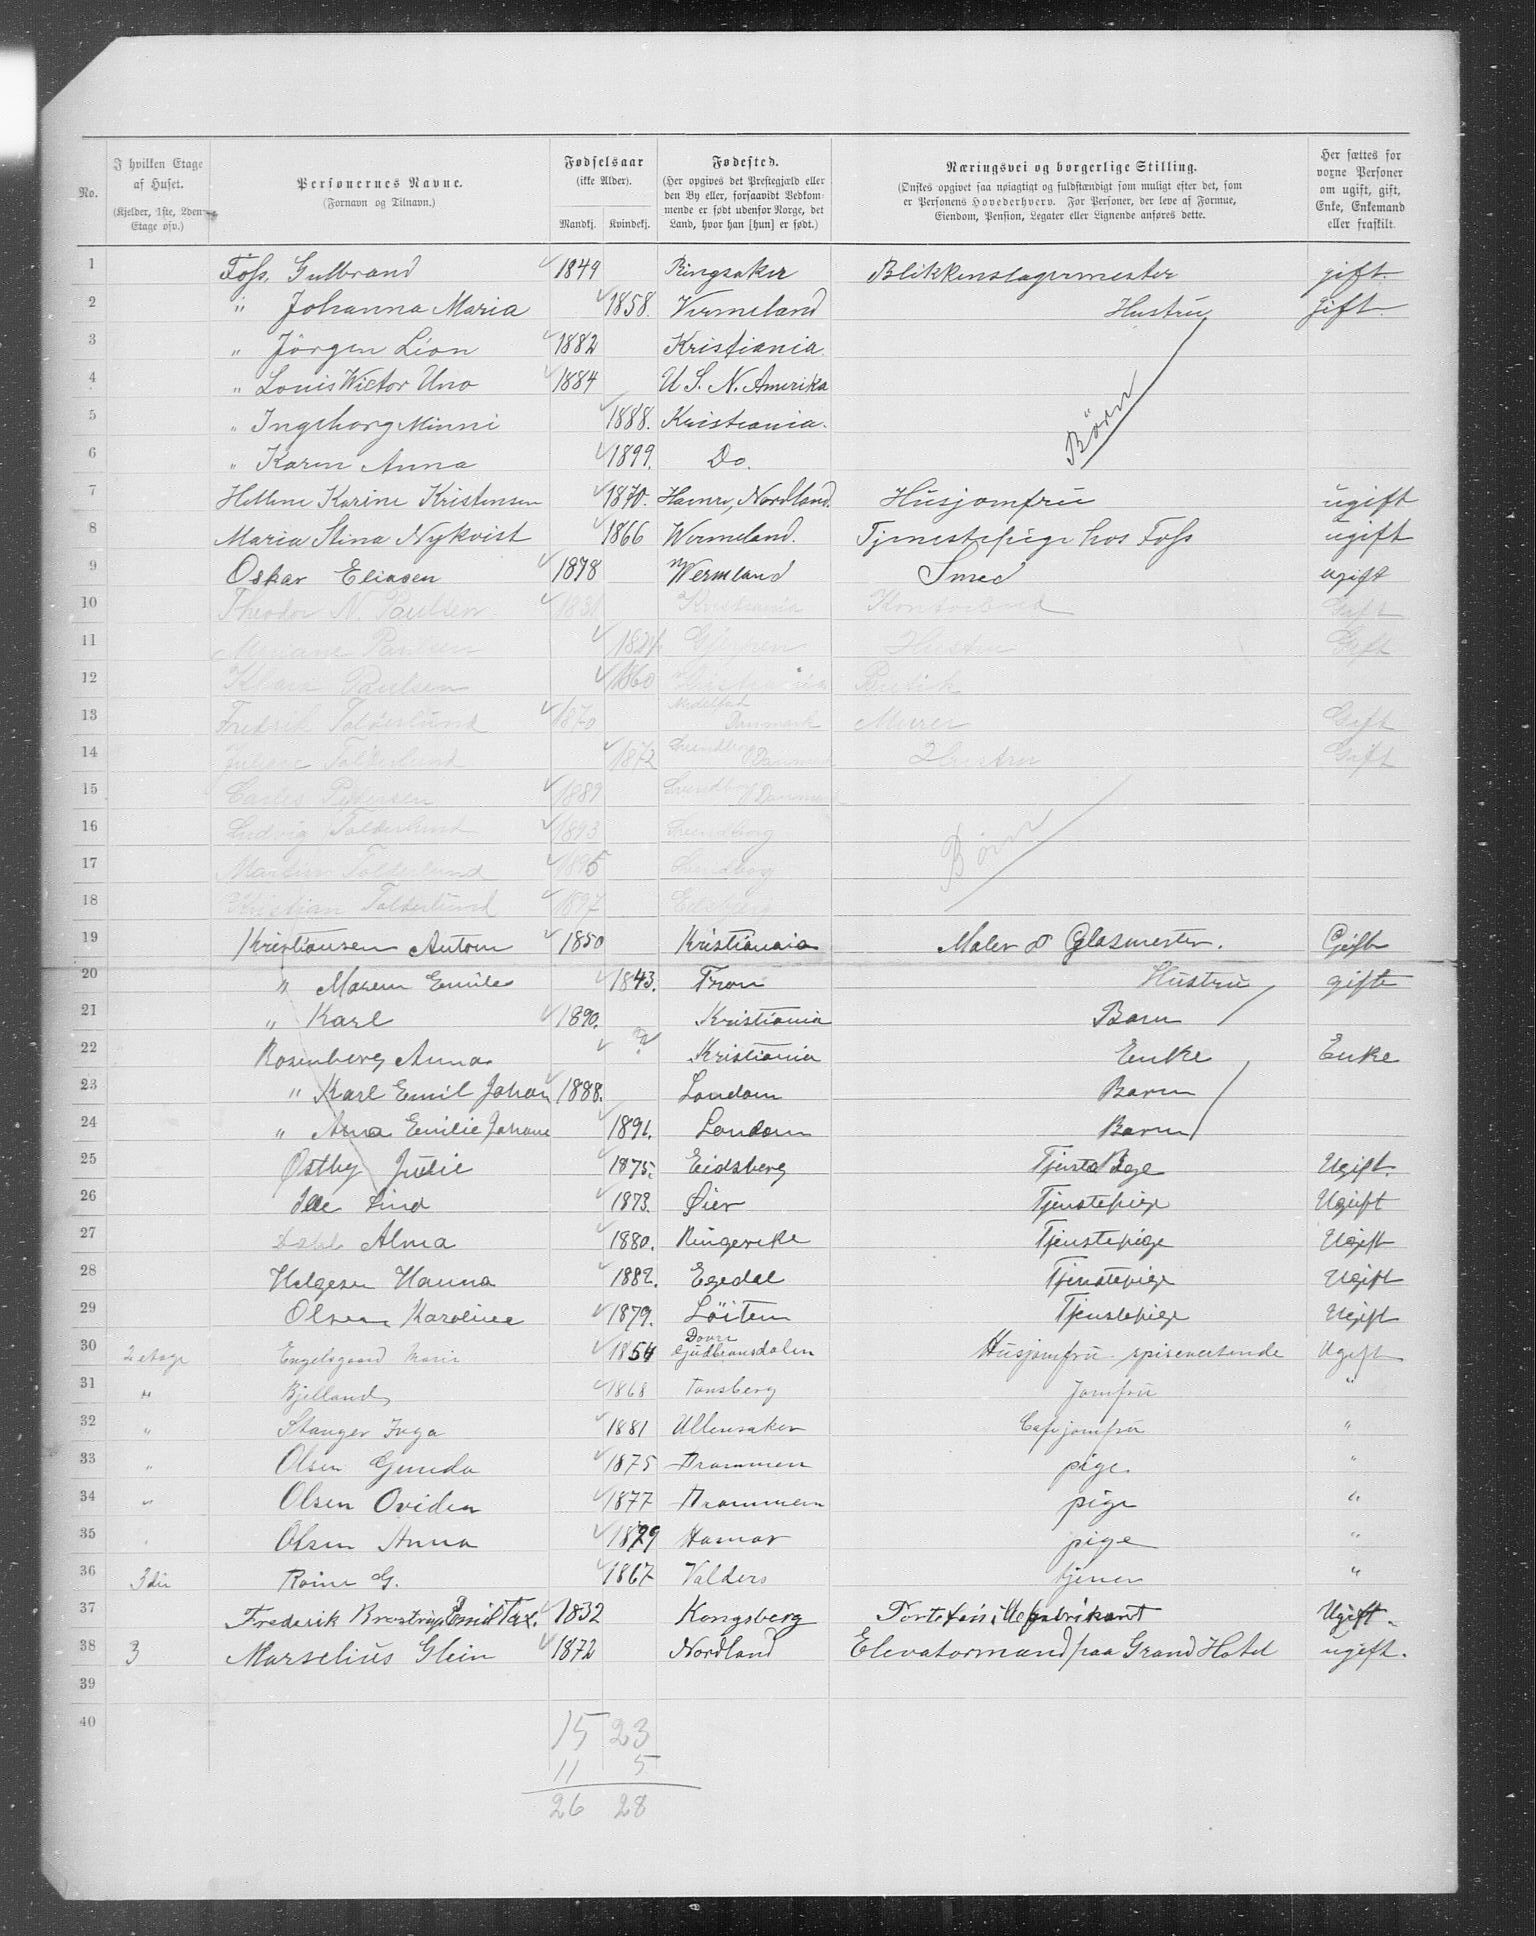 No.
I hvilken Etage af Huset.
(Kjelder, 1ste, 2den Etage osv.)
Personernes Navne.
(Fornavn og Tilnavn.)
Fødselsaar
(ikke Alder).
Mandkj. Kvindekj.
Fødested.
(Her opgives det Præstegjæld eller
den By eller, forsaavidt Vedkom-
mende er født udenfor Norge, det
Land, hvor han [hun] er født.)
Næringsvei og borgerlige Stilling.
(Ønskes opgivet saa nøiagtigt og fuldstændigt som muligt efter det, som
er Personens Hovederhverv. For Personer, der leve af Formue,
Eiendom, Pension, Legater eller Lignende anføres dette.
Her sættes for
voxne Personer
om ugift, gift,
Enke, Enkemand
eller fraskilt.
1 Foss, Gulbrand 1849 Ringsaker Blikkenslagermester gift.
2 " Johanna Maria 1858. Vermeland Hustru gift
3 " Jörgen Lion 1882 Kristiania
4 " Louis Wictor Uno 1884 U S. N. Amerika
5 " Ingeborg Minni 1888. Kristiania. Börn
6 " Karen Anna 1899. Do.
7 Hellene Karine Kristensen 1870. Hamrø, Nordland. Husjomfru ugift
8 Maria Stina Nykvist 1866 Wermeland. Tjenestepige hos Foss ugift
9 Oskar Eliasen 1878 Wermland Smed ugift
10 Theodor N. Paulsen 1831 Kristiania Kontorbud Gift
11 Mariane Paulsen 182 Gjerpen Hustru Gift
12 Klara Paulsen 1860 Kristiania Butik
13 Fredrik Tolderlund 1870 Medelfart Danmark Murer Gift
14 Juliane Tolderlund 1872 Svendborg Danmark Hustru Gift
15 Carles Petersen 1889 Svendborg Danmark
16 Ludvig Tolderlund 1893 Svendborg Börn
17 Martin Tolderlund 1895 Svendborg
18 Kristjan Tolderlund 1897 Esbjerg
19 Kristiansen Anton 1850 Kristiania Maler & Glasmester. Gift
20 " Maren Emilie 1843. Fron Hustru gifte
21 " Karl 1890. Kristiania Barn
22 Rosenberg Anna ? Kristiania Enke Enke
23 " Karl Emil Johan 1888. London Barn
24 " Ana Emilie Johane 1891. London Barn
25 Østby Julie 1875. Eidsberg Tjenste Pige Ugift.
26 Lind 1873. Øier Tjenstepige Ugift
27 Dahl Alma 1880. Ringerike Tjenstepige Ugift
28 Helgesen Hanna 1882. Egedal Tjenstepige Ugift
29 Olsen Karoline 1879. Löiten Tjenstepige Ugift
30 2 etage Engelsgaard Marie 1854 Dovre Gudbransdalen Husjomfru spiseværtinde Ugift
31 " Bjelland 1868 Tønsberg Jomfru "
32 " Stanger Inga 1881 Ullensaker Cafejomfru "
33 " Olsen Gunda 1875 Drammen pige "
34 " Olsen Ovidia 1877 Drammen pige "
35 " Olsen Anna 1879 Hamar pige "
36 3die Roine G. 1867 Valders tjener "
37 Frederik Brostrup Emil Tax. 1832 Kongsberg Ugift.
38 3 Marselius Glein 1872 Nordland Elevatormand paa Grand Hotel ugift.
39
40
15 23
11 5
26 28